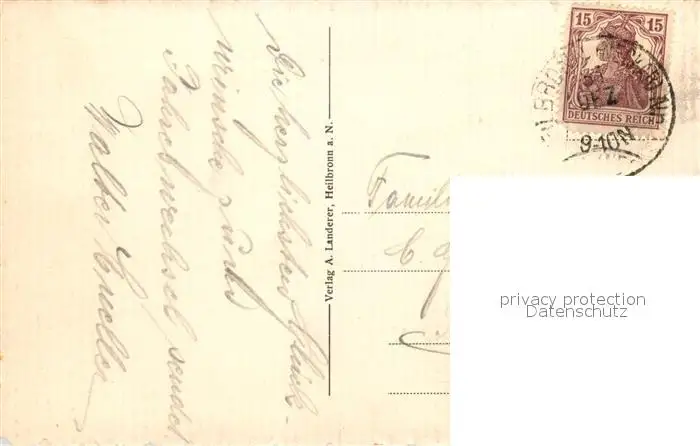 Die herzlichsten Glück-
wünsche zum
Jahreswechsel sendet
Walter
Verlag A. Landerer, Heilbronn a. N.
15 15
DEUTSCHES REICH
DEZ
9-10N
Famili
C.
privacy protection
Datenschutz